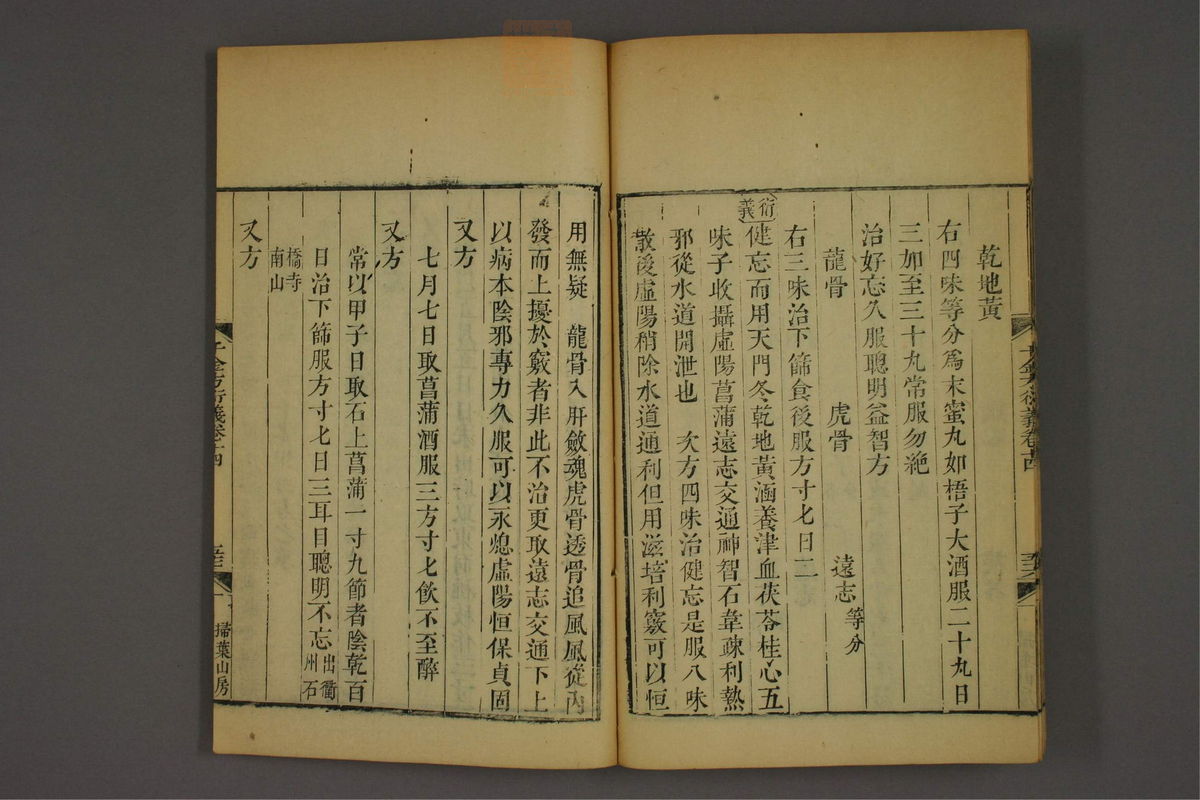 乾地黃
右四味等分爲末蜜丸如梧子大酒服二十丸日
三加至三十丸常服勿絶
治好忘久服聰明益智方
龍骨 虎骨 遠志等分
右三味治下篩食後服方寸匕日二
衍義
健忘而用天門冬乾地黃涵養津血茯苓桂心五
味子收攝虛陽菖蒲遠志交通神智石韋疎利熱
邪從水道開泄也 次方四味治健忘是服八味
散後虛陽稍除水道通利但用滋培利竅可以恒
用無疑 龍骨入肝斂魂虎骨透骨追風風從內
發而上擾於竅者非此不治更取遠志交通下上
以病本陰邪專力久服可以永熄虛陽恒保貞固
又方
七月七日取菖蒲酒服三方寸匕飲不至醉
又方
常以甲子日取石上菖蒲一寸九節者陰乾百
日治下篩服方寸匕日三耳目聰明不忘出衢州石
橋寺南山
又方
千金方衍義卷十四
掃葉山房